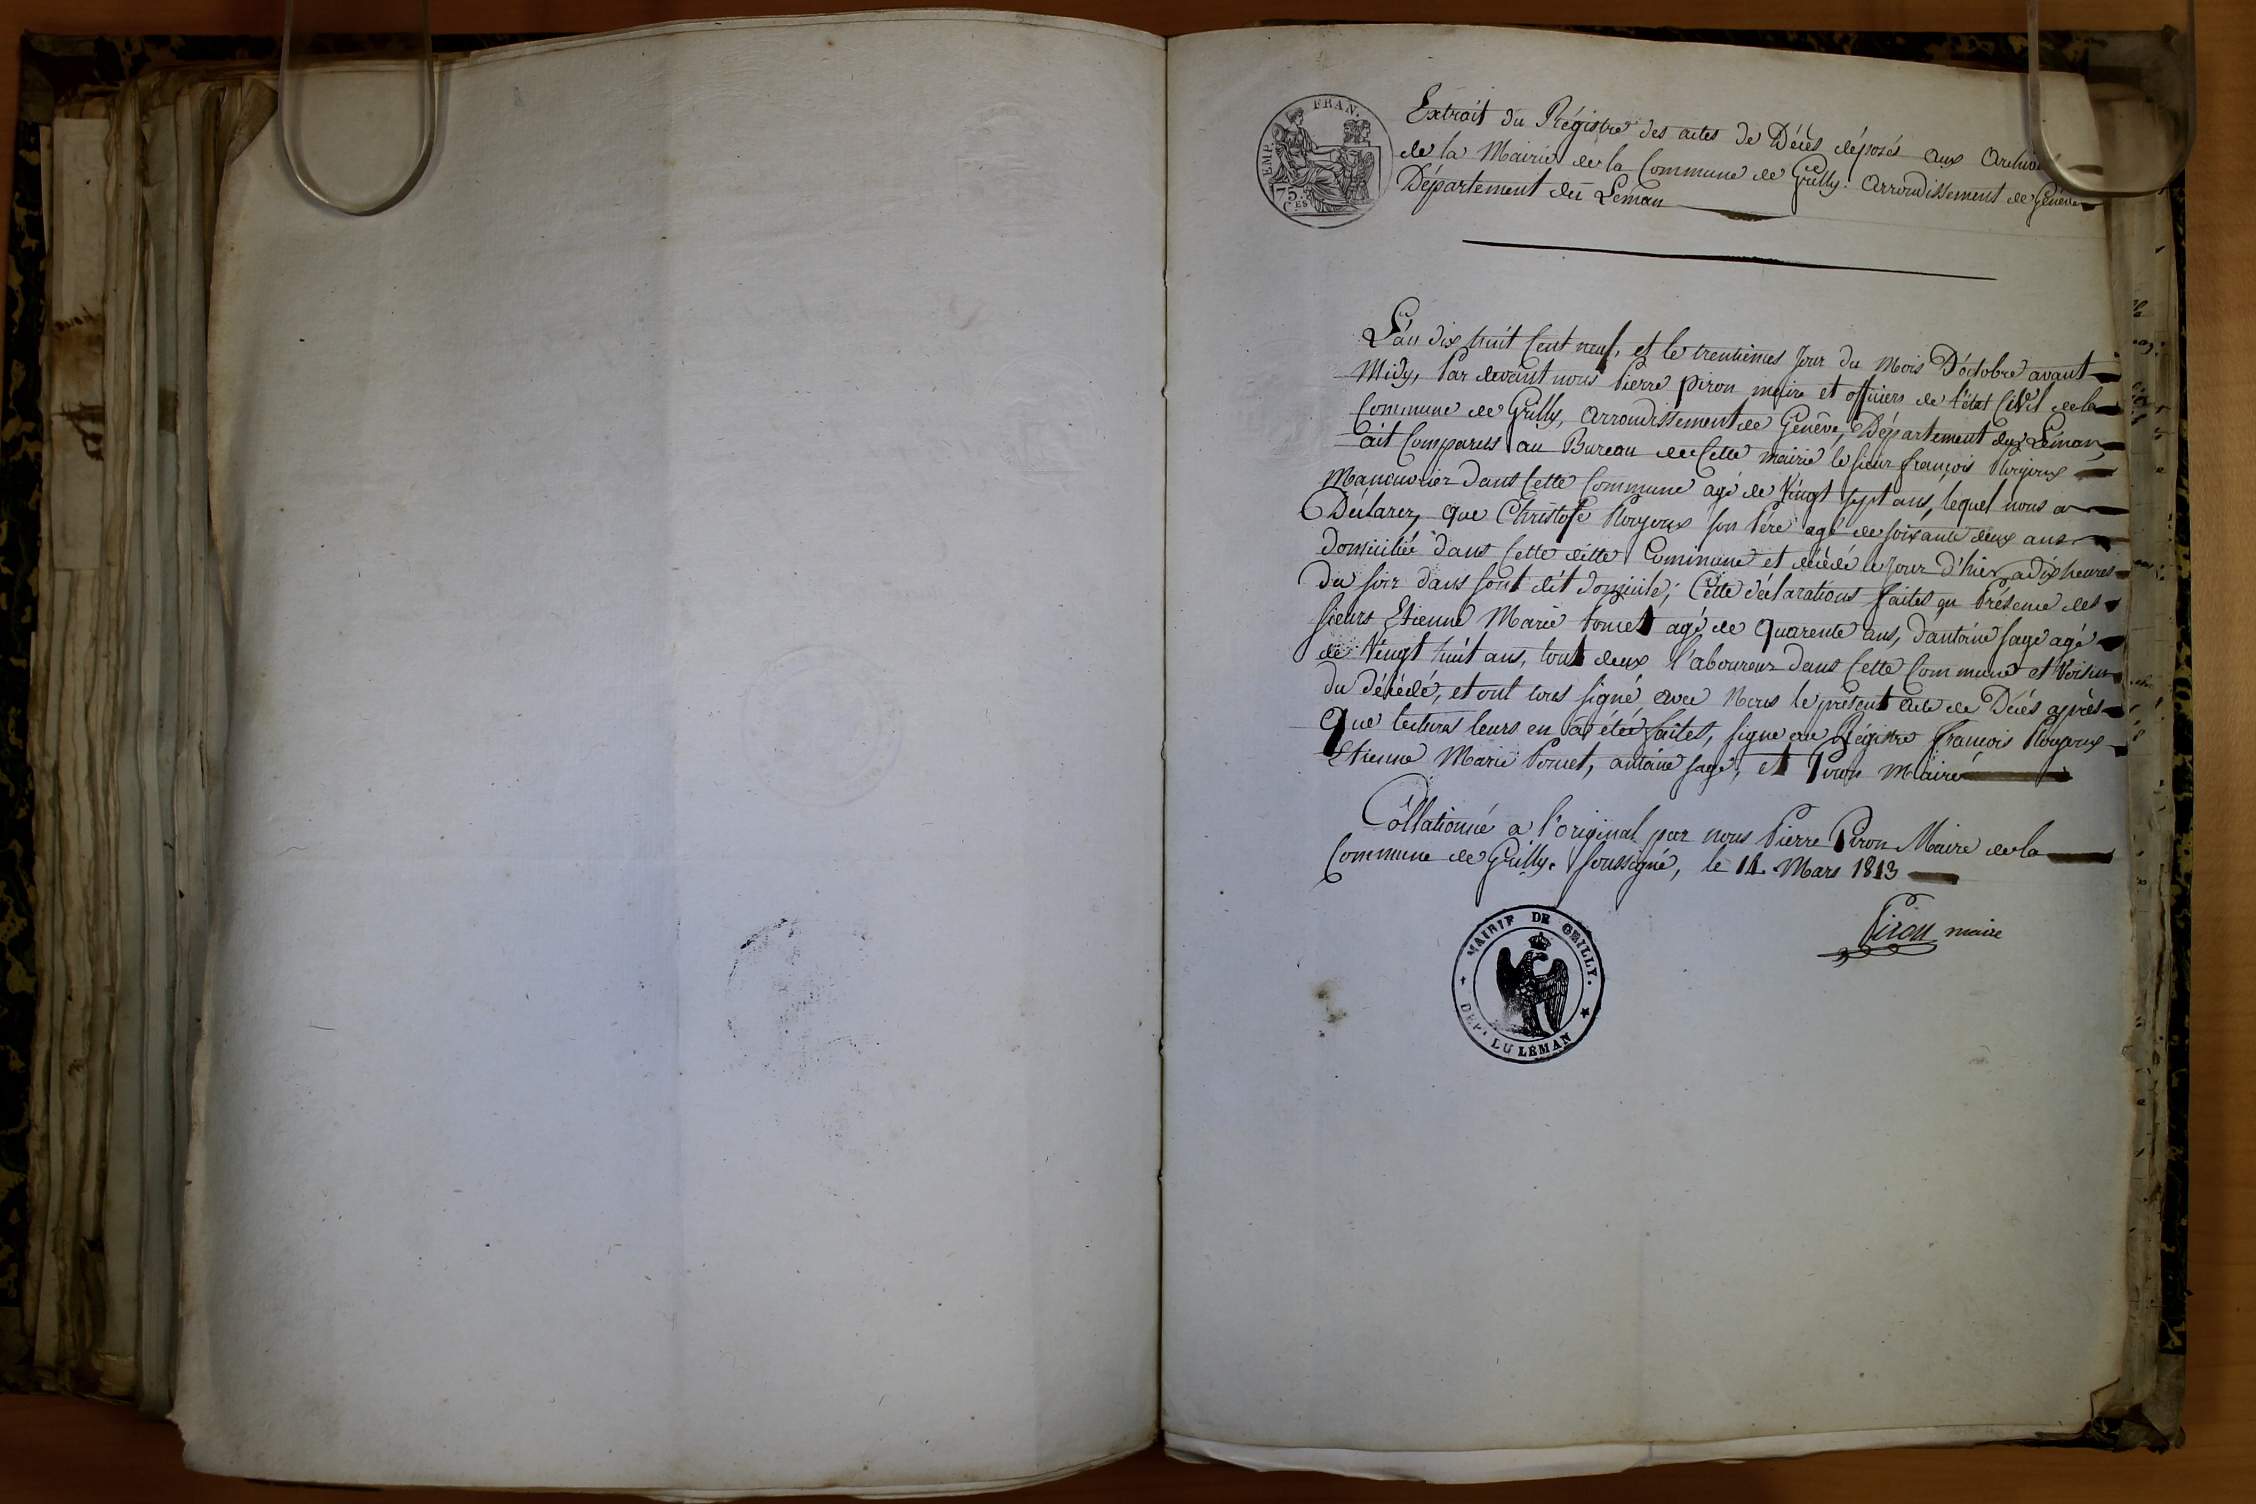 EMP. FRAN.
75
CES
Extrait du Régistre des actes de Décès déposés aux
de la Mairie de la Commune de Grilly. Arrondissement de Genève
Département du Léman
L'an dix huit Cent neuf, et le trentiemes Jour du Mois D'octobre avant
Midy, Par devant nous Pierre piron maire et officiers de l'état Civil de la
Commune de Grilly, Arrondissement de Genêve, Département du Léman,
ait Comparus au Bureau de Cette mairie le sieur françois
Manouvrier dans Cette Commune agé de Vingt sept ans, lequel nous a
Déclarez, que Christofe son Pére agé de soixante deux ans
domicilié dans Cette ditte Commune et décédé le Jour d'hier a dix heures
du soir dans sont dit domicile; Cette déclarations faites en Présence des
sieurs Etienne Marie Pomet agé de quarente ans, d'antoine sage agé
de Vingt huit ans, tout deux l'aboureur dans Cette Commune et Voisin
du décédé, et ont tous signé avec Nous le présent acte de Décés après
que lectures leurs en a été faites, signe au Régistre françois
Etienne Marie Pomet, antoine sage, et Piron Maire
Côllationné a l'original par nous Pierre Piron Maire de la
Commune de Grilly. soussigné, le 14 Mars 1813
Piron maire
MAIRIE DE GRILLY.
DEP. DU LÉMAN